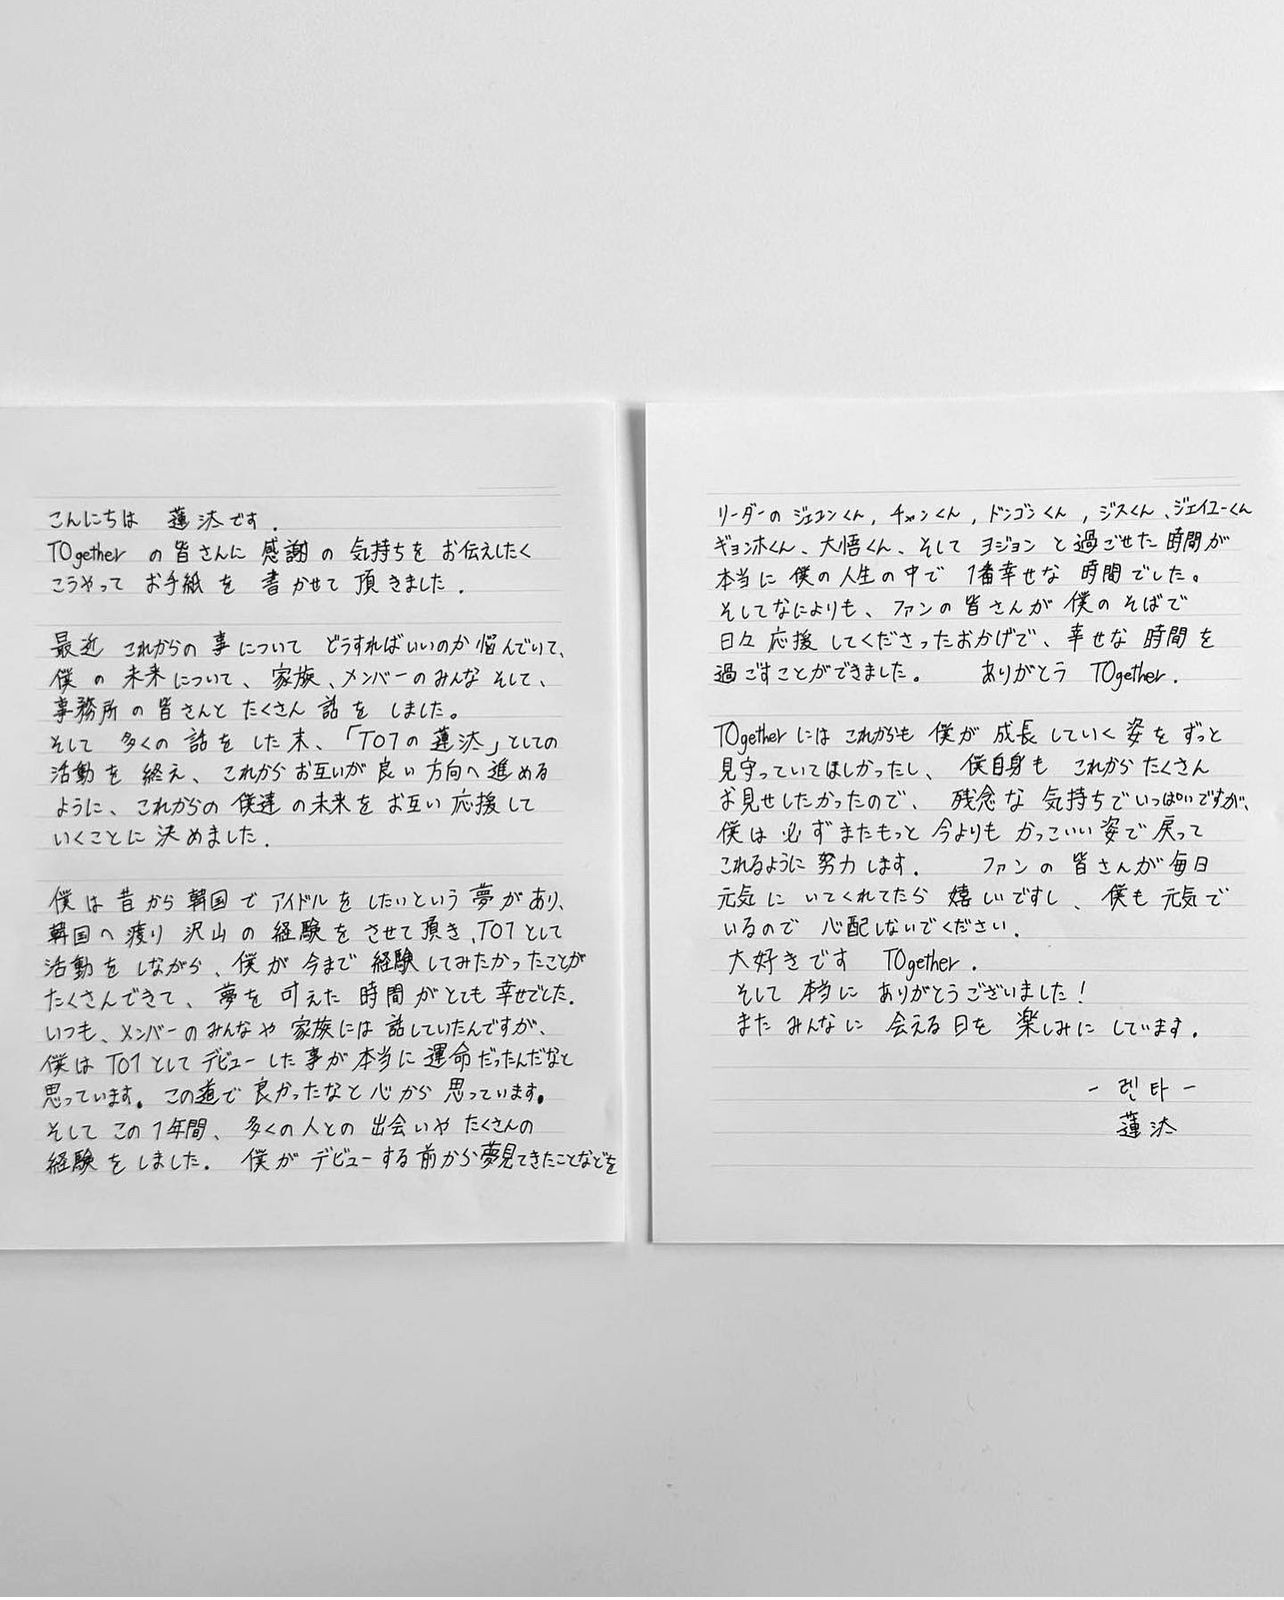 こんにちは 蓮汰です.
TOgether の皆さんに 感謝の 気持ちを お伝えしたく
こうやって お手紙を 書かせて頂きました.
最近 これからの事について どうすればいいのか悩んでいて、
僕の未来について、家族、メンバーのみんな そして、
事務所の皆さんと たくさん 話を しました。
そして 多くの 話を した末、「TO1の蓮汰」としての
活動を 終え、これから お互いが 良い方向へ進める
ように、これからの 僕達の未来を お互い応援して
いくことに 決めました.
僕は昔から韓国で アイドルを したいという夢があり、
韓国へ渡り 沢山の 経験を させて頂き、TO1として
活動を しながら、僕が 今まで 経験してみたかったことが
たくさんできて、夢を 叶えた 時間がとても幸せでした.
いつも、メンバーのみんなや 家族には 話していたんですが、
僕はTO1としてデビューした事が本当に運命だったんだなと
思っています。この道で良かったなと心から 思っています。
そしてこの1年間、多くの人との出会いや たくさんの
経験を しました. 僕が デビューする前から夢見てきたことなどを
リーダーの ジェユンくん, チャンくん, ドンゴンくん, ジスくん、ジェイユーくん
ギョンホくん、大悟くん、そして ヨジョン と過ごせた時間が
本当に僕の人生の中で 1番幸せな 時間でした。
そしてなによりも、ファンの皆さんが 僕のそばで
日々応援してくださったおかげで、幸せな時間を
過ごすことができました。 ありがとう TOgether.
TOgetherには これからも 僕が 成長していく姿を ずっと
見守っていてほしかったし、僕自身も これから たくさん
お見せしたかったので、残念な気持ちでいっぱいですが、
僕は必ずまたもっと今よりも かっこいい姿で戻って
これるように努力します. ファンの皆さんが毎日
元気に いてくれてたら 嬉しいですし、僕も元気で
いるので 心配しないでください.
大好きです TOgether.
そして 本当に ありがとうございました!
また みんなに 会える日を 楽しみに しています.
- 렌타 -
蓮汰